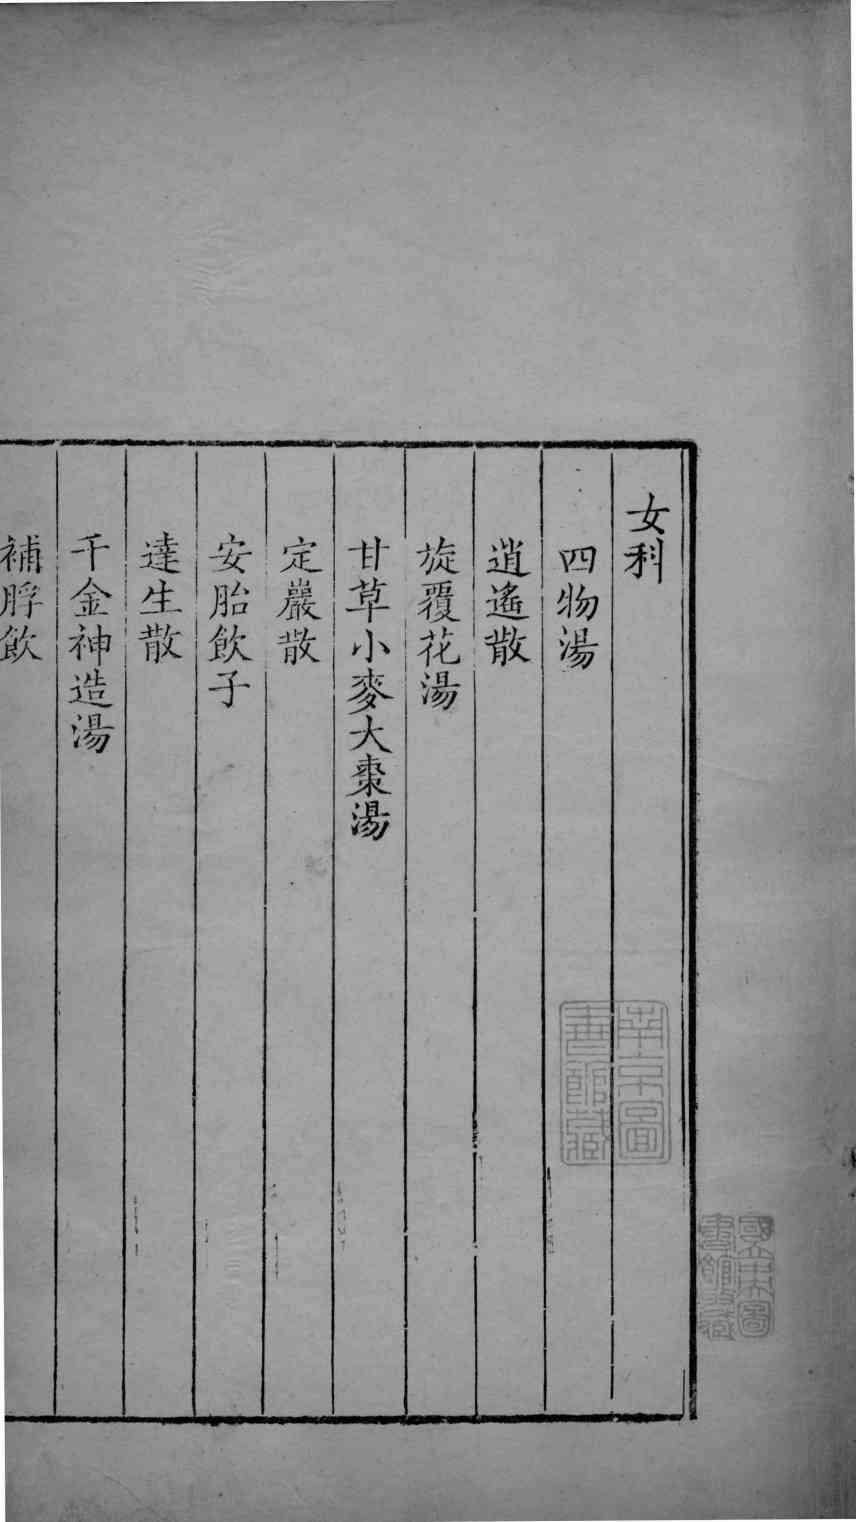 女科
四物湯
逍遙散
旋覆花湯
甘草小麥大棗湯
定嚴散
安胎飲子
達生散
千金神造湯
補脬飲
南京圖
書館藏